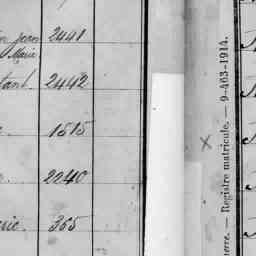 jean 2441
Marie
tant. 2442
1515
2240
rie. 365
erre. — Registre matricule. — 9-463-1914.